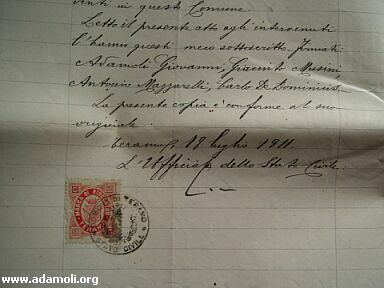 venti in questo Comune.
Letto il presente atto agli intervenuti
l'hanno questi meco sottoscritto. Firmati:
Adamoli Giovanni, Giacinto Musini
Antonio Mazzarelli, Carlo De Dominicis.
La presente copia è conforme al suo
originale.
Teramo, 19 luglio 1911
L'Ufficiale dello Stato Civile.
DI TERAMO
STATO CIVILE
www.adamoli.org